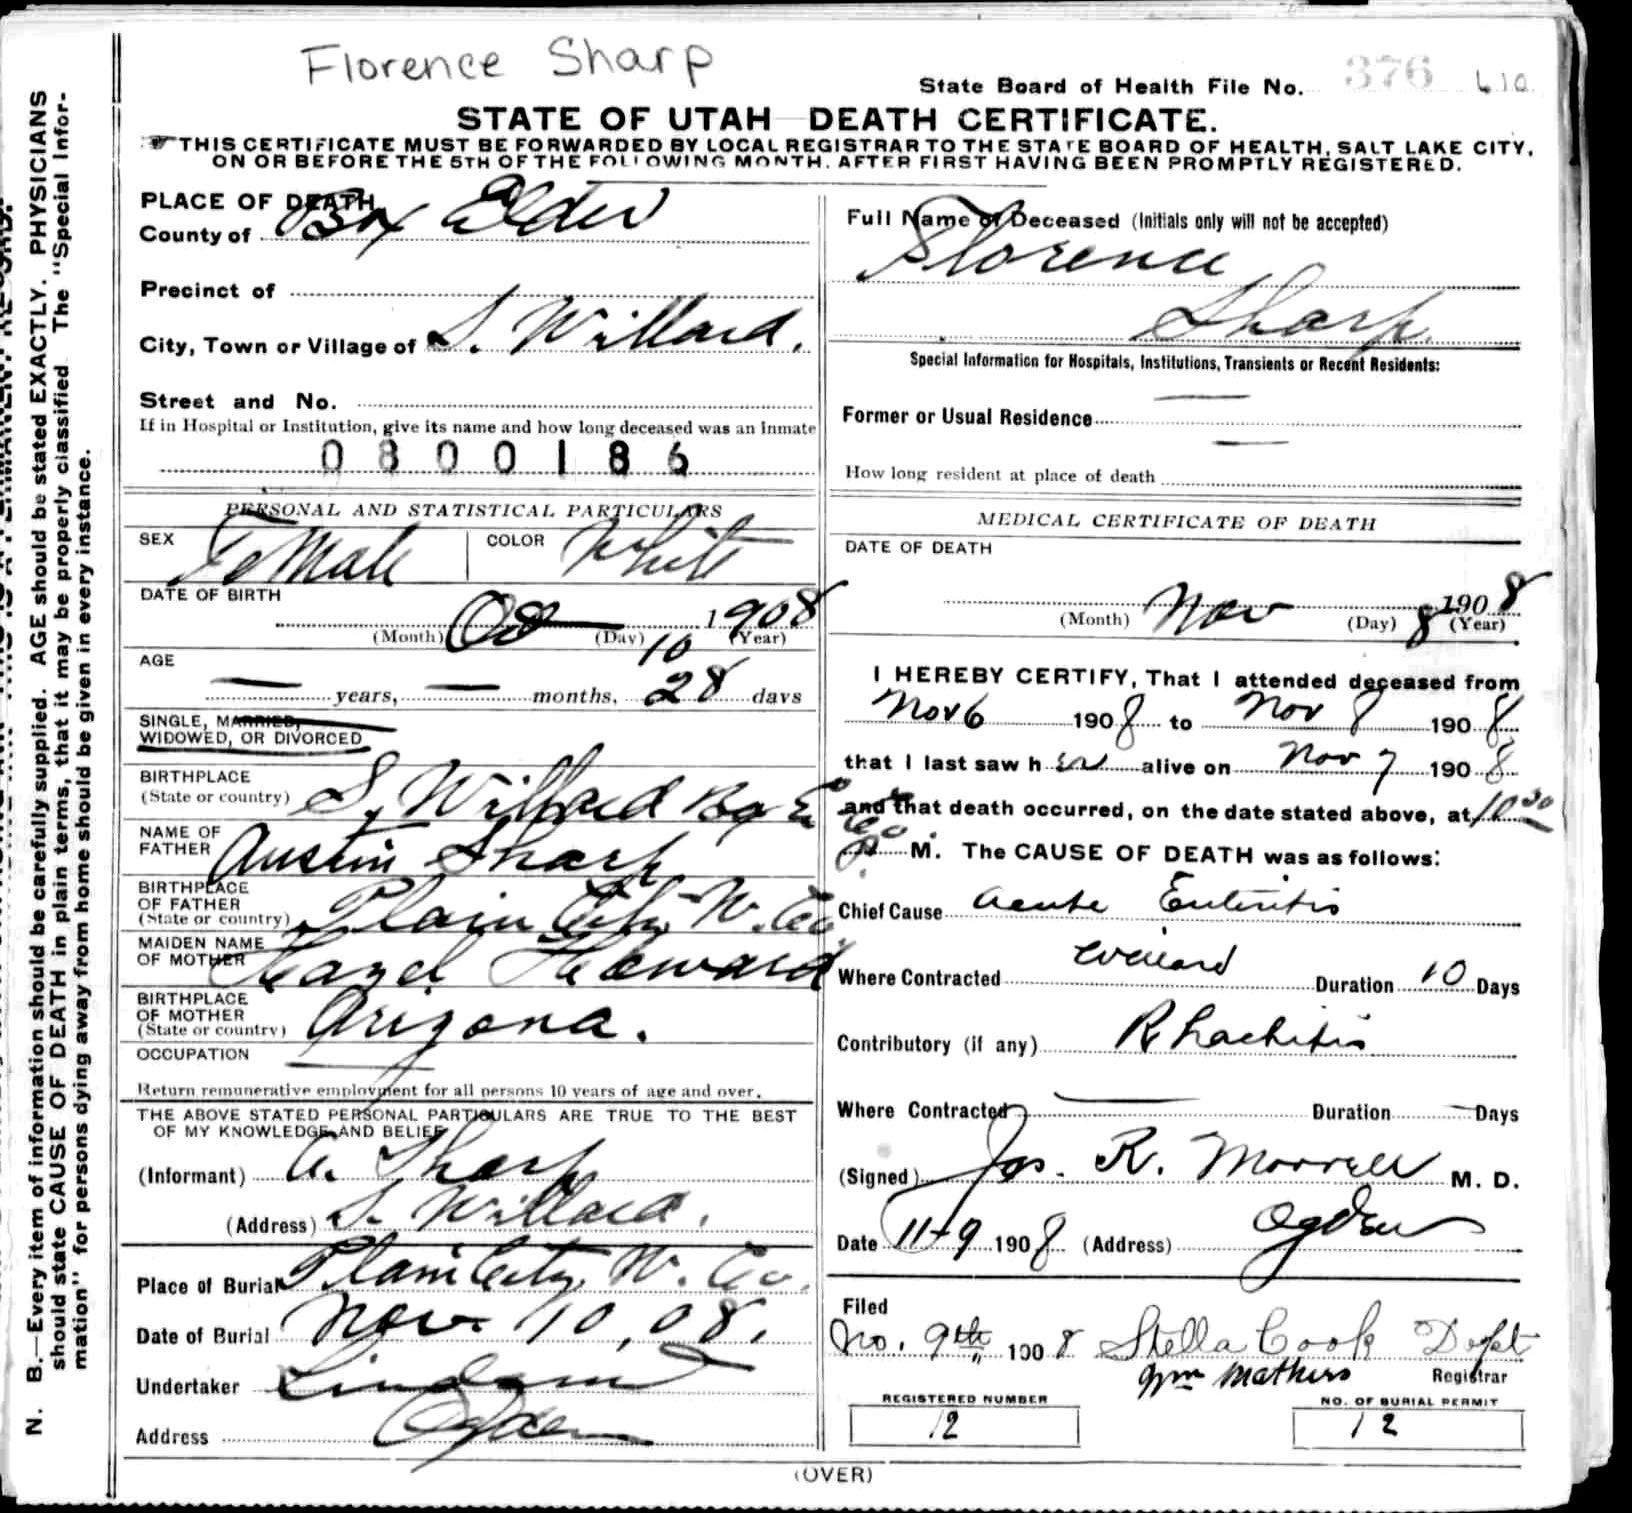 Florence Sharp
State Board of Health File No. 376 610
STATE OF UTAH DEATH CERTIFICATE.
THIS CERTIFICATE MUST BE FORWARDED BY LOCAL REGISTRAR TO THE STATE BOARD OF HEALTH, SALT LAKE CITY,
ON OR BEFORE THE 5TH OF THE FOLLOWING MONTH, AFTER FIRST HAVING BEEN PROMPTLY REGISTERED.
PLACE OF DEATH
County of Box Elder
Precinct of
City, Town or Village of S. Willard.
Street and No.
If in Hospital or Institution, give its name and how long deceased was an inmate
0800186
PERSONAL AND STATISTICAL PARTICULARS
SEX FeMale COLOR White
DATE OF BIRTH
(Month) Oct (Day) 10 1908 (Year)
AGE
— years, — months, 28 days
SINGLE, MARRIED,
WIDOWED, OR DIVORCED
BIRTHPLACE
(State or country) S. Willard Box E Co
NAME OF
FATHER Austin Sharp
BIRTHPLACE
OF FATHER
(State or country) Plain City W. Co.
MAIDEN NAME
OF MOTHER Hazel Heward
BIRTHPLACE
OF MOTHER
(State or country) Arizona.
OCCUPATION —
Return remunerative employment for all persons 10 years of age and over.
THE ABOVE STATED PERSONAL PARTICULARS ARE TRUE TO THE BEST
OF MY KNOWLEDGE AND BELIEF
(Informant) A. Sharp
(Address) S. Willard.
Place of Burial Plain City W. Co.
Date of Burial Nov 10, 08.
Undertaker
Address Ogden
Full Name of Deceased (Initials only will not be accepted)
Florence
Sharp.
Special Information for Hospitals, Institutions, Transients or Recent Residents:
Former or Usual Residence —
How long resident at place of death —
MEDICAL CERTIFICATE OF DEATH
DATE OF DEATH
(Month) Nov (Day) 8 1908 (Year)
I HEREBY CERTIFY, That I attended deceased from
Nov 6 1908 to Nov 8 1908
that I last saw her alive on Nov 7 1908
and that death occurred, on the date stated above, at 10 30
P. M. The CAUSE OF DEATH was as follows:
Chief Cause Acute Enteritis
Where Contracted Willard Duration 10 Days
Contributory (if any) Rhachitis
Where Contracted — Duration — Days
(Signed) Jos. R. Morrell M. D.
Date 11-9 1908 (Address) Ogden
Filed
No. 9th 1908 Stella Cook Dept
Wm Mathers Registrar
REGISTERED NUMBER
12
NO. OF BURIAL PERMIT
12
(OVER)
N. B.—Every item of information should be carefully supplied. AGE should be stated EXACTLY. PHYSICIANS
should state CAUSE OF DEATH in plain terms, that it may be properly classified. The "Special Infor-
mation" for persons dying away from home should be given in every instance.